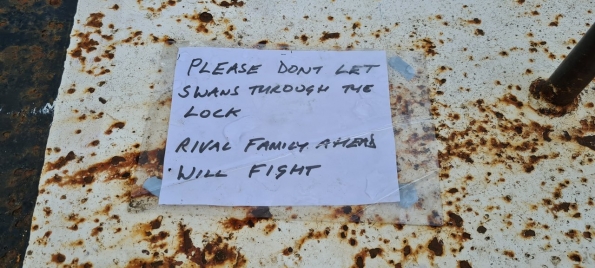 PLEASE DONT LET
SWANS THROUGH THE
LOCK
RIVAL FAMILY AHEAD
WILL FIGHT